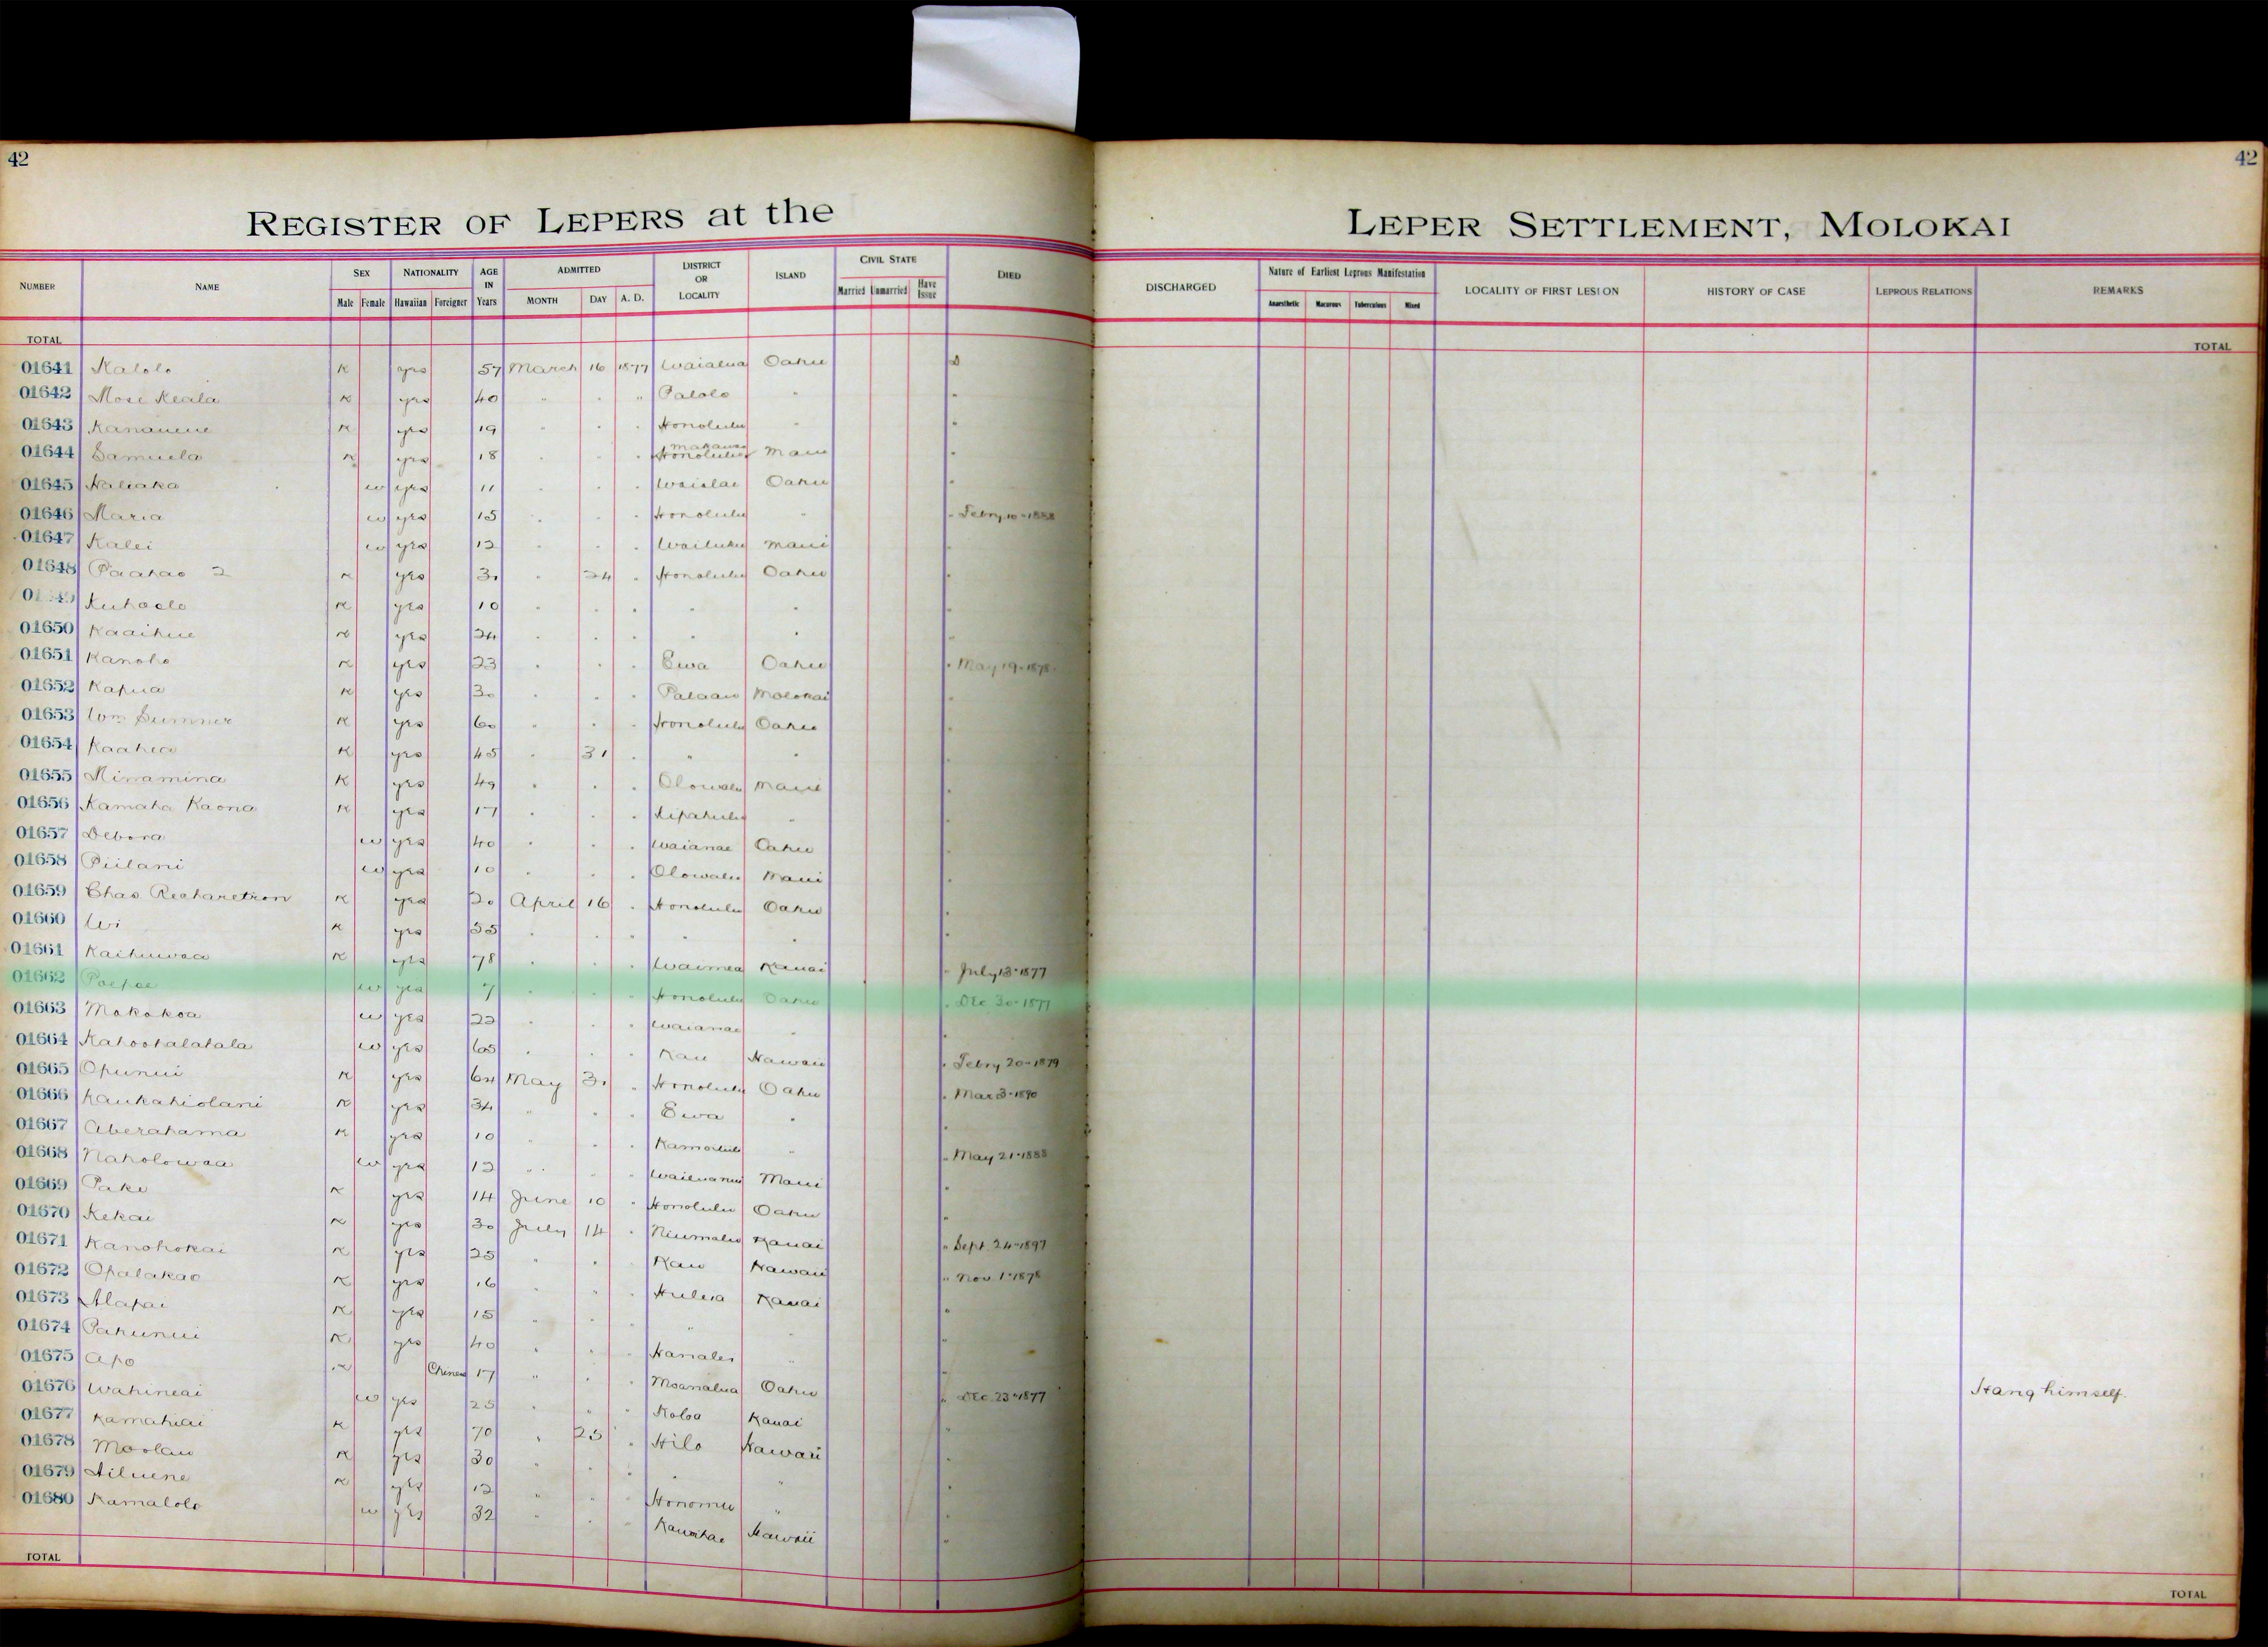 42
42
REGISTER OF LEPERS at the LEPER SETTLEMENT, MOLOKAI
NUMBER NAME SEX Male Female NATIONALITY Hawaiian Foreigner AGE IN Years ADMITTED MONTH DAY A. D. DISTRICT OR LOCALITY ISLAND CIVIL STATE Married Unmarried Have Issue DIED DISCHARGED Nature of Earliest Leprous Manifestation Anaesthetic Macurous Tuberculous Mixed LOCALITY OF FIRST LESION HISTORY OF CASE LEPROUS RELATIONS REMARKS
TOTAL TOTAL
01641 Kalolo K yes 57 March 16 1877 Waialua Oahu D
01642 Mose Keala K yes 40 " " " Palolo " "
01643 Kananene K yes 19 " " " Honolulu " "
01644 Samuela K yes 18 " " " Honolulu Makawao Maui "
01645 Haliaka w yes 11 " " " Waialae Oahu "
01646 Maria w yes 15 " " " Honolulu " " Febry 10-1888
01647 Kalei w yes 12 " " " Wailuku Maui "
01648 Paahao 2 K yes 30 " 24 " Honolulu Oahu "
Kuhaelo K yes 10 " " " " " "
01650 Kaaihue K yes 24 " " " " " "
01651 Kanoho K yes 23 " " " Ewa Oahu " May 19-1878
01652 Kapua K yes 30 " " " Palaau Molokai "
01653 Wm Sumner K yes 60 " " " Honolulu Oahu "
01654 Kaahea K yes 45 " 31 " " " "
01655 Minamina K yes 49 " " " Olowalu Maui "
01656 Kamaka Kaona K yes 17 " " " Kipahulu " "
01657 Debora w yes 40 " " " Waianae Oahu "
01658 Piilani w yes 10 " " " Olowalu Maui "
01659 Chas Richardson K yes 20 April 16 " Honolulu Oahu "
01660 Wi K yes 35 " " " " " "
01661 Kaihuwaa K yes 78 " " " Waimea Kauai " July 13-1877
01662 Poepoe w yes 7 " " " Honolulu Oahu " Dec 30-1877
01663 Makakoa w yes 22 " " " Waianae " "
01664 Kahoohalahala w yes 65 " " " Kau Hawaii " Febry 20-1879
01665 Opunui K yes 64 May 31 " Honolulu Oahu " Mar 3-1890
01666 Kaukahiolani K yes 34 " " " Ewa " "
01667 Aberahama K yes 10 " " " Kamoiliili " " May 21-1888
01668 Naholowaa w yes 12 " " " Wailuanui Maui "
01669 Pake K yes 14 June 10 " Honolulu Oahu "
01670 Kekai K yes 30 July 14 " Niumalu Kauai " Sept. 24-1897
01671 Kanohokai K yes 25 " " " Kau Hawaii " Nov 1-1878
01672 Opalakao K yes 16 " " " Huleia Kauai "
01673 Alapai K yes 15 " " " " " "
01674 Pahunui K yes 40 " " " Hanalei " "
01675 Apo K Chinese 17 " " " Moanalua Oahu " Dec. 23-1877 Hang himself.
01676 Wahineai w yes 25 " " " Koloa Kauai "
01677 Kamahiai K yes 70 " 25 " Hilo Hawaii "
01678 Moolau K yes 30 " " " " " "
01679 Hiluene K yes 12 " " " Honomu " "
01680 Kamalolo w yes 32 " " " Kawaihae Hawaii "
TOTAL TOTAL